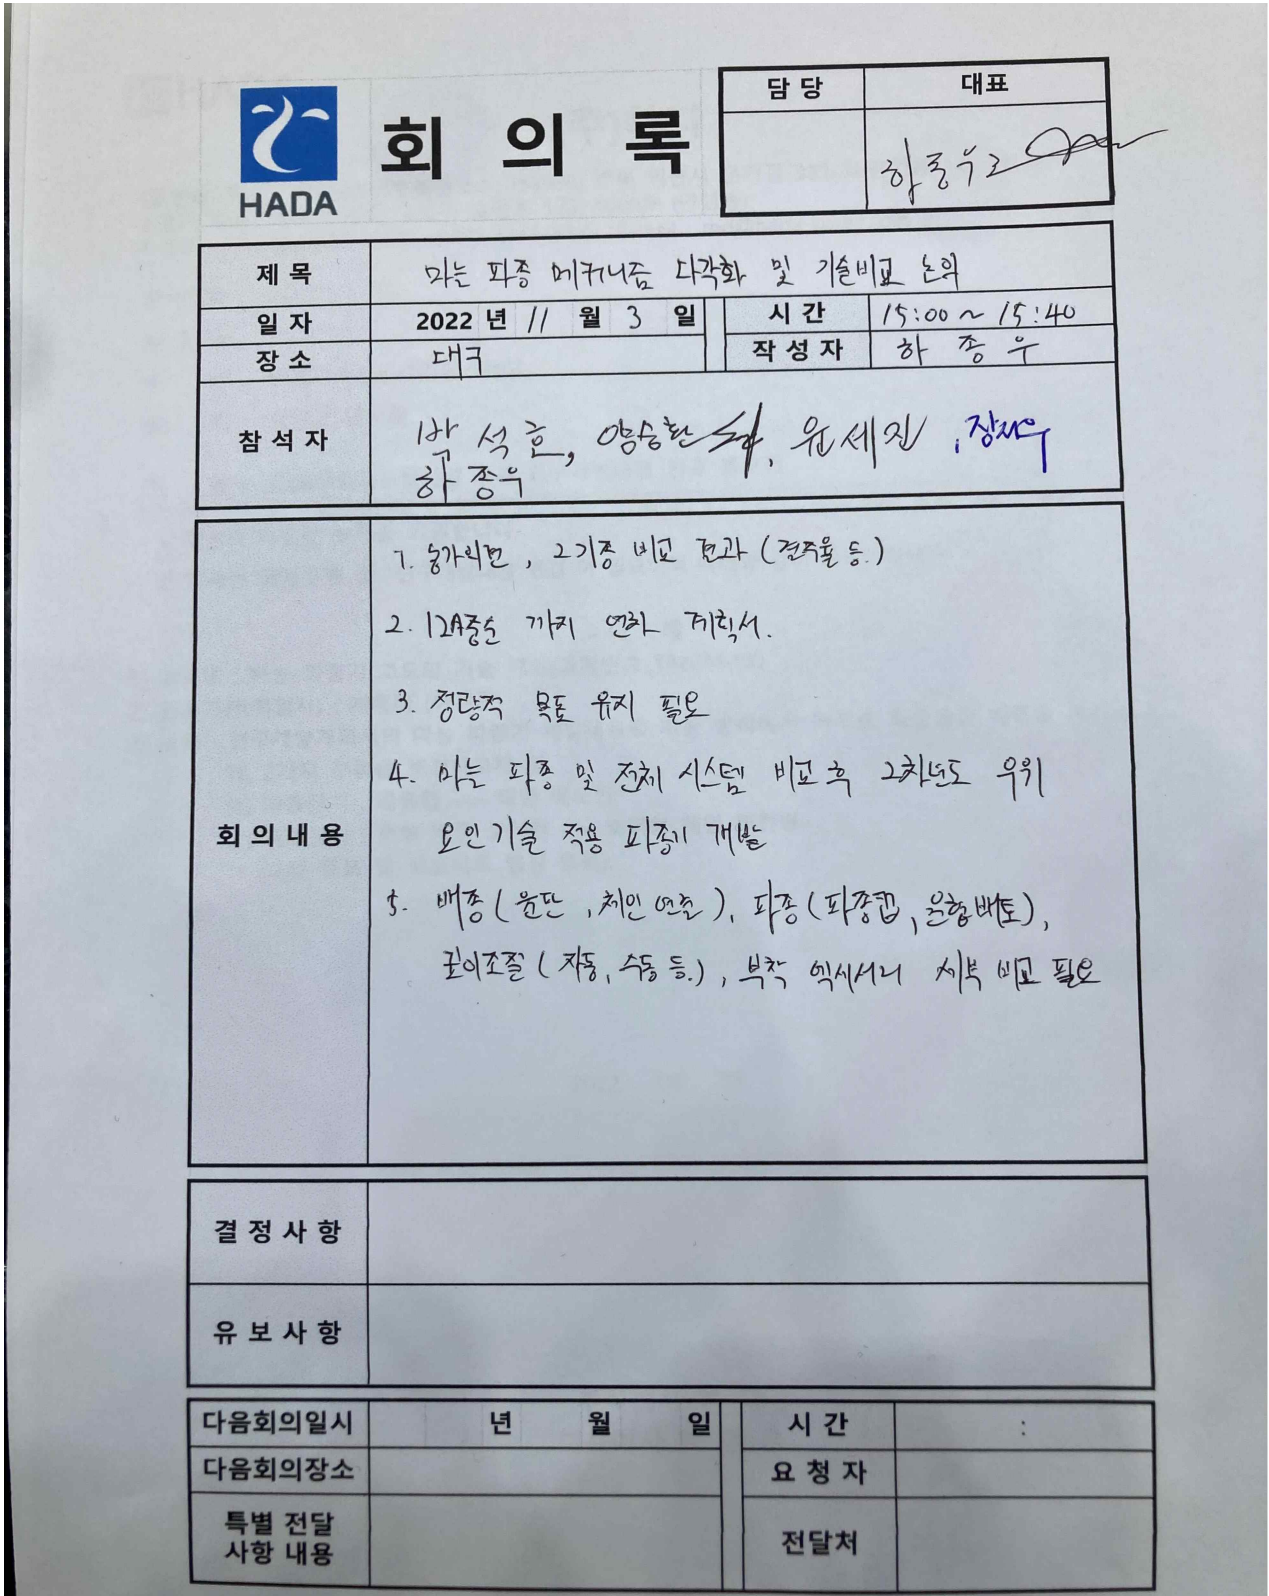 HADA
회 의 록
담 당 대표
하종우
제 목 마늘 파종 메커니즘 다각화 및 기술비교 논의
일 자 2022 년 11 월 3 일 시 간 15:00 ~ 15:40
장 소 대구 작 성 자 하 종 우
참 석 자 박 석 호, 양승환, 윤세진, 장지우
하 종우
회 의 내 용
1. 농가의견, 2기종 비교 결과 (결주율 등.)
2. 12월중순 까지 연차 계획서.
3. 정량적 목표 유지 필요
4. 마늘 파종 및 전체 시스템 비교 후 2차년도 우위
요인기술 적용 파종기 개발
5. 배종 (원판, 체인 연결), 파종 (파종컵, 배토),
깊이조절 (자동, 수동 등.), 부착 액세서리 세부 비교 필요
결 정 사 항
유 보 사 항
다음회의일시 년 월 일 시 간 :
다음회의장소 요 청 자
특별 전달
사항 내용 전달처